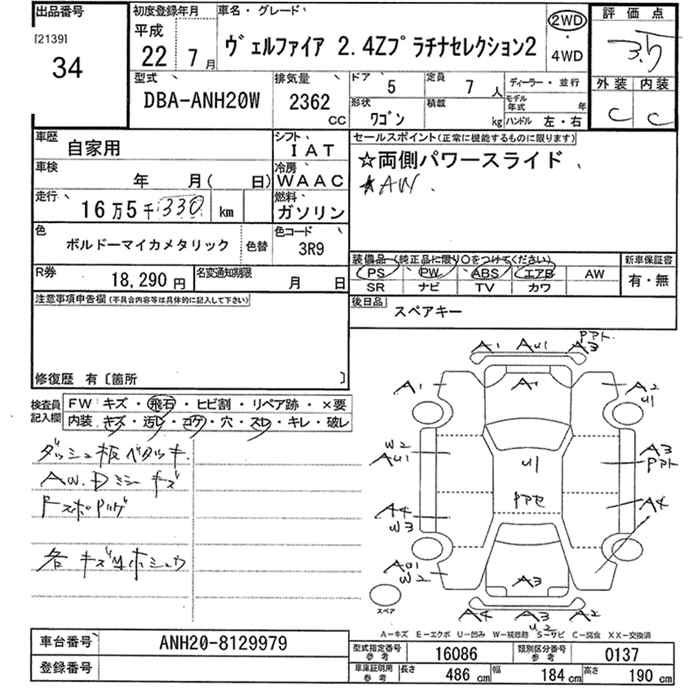 出品番号
[2139]
34
初度登録年月
平成
22 7 月
車名・グレード
ヴェルファイア 2.4Zプラチナセレクション2
2WD
・
4WD
評価点
3.5
外装 内装
C C
型式
DBA-ANH20W
排気量
2362
CC
ドア 5
定員 7 人
形状 ワゴン
積載 kg
ディーラー・並行
モデル年式 年
ハンドル 左・右
車歴 自家用
シフト IAT
車検 年 月( 日)
冷房 WAAC
走行 16 万 5 千 330 km
燃料 ガソリン
色 ボルドーマイカメタリック 色替
色コード 3R9
R券 18,290 円
名変通知期限 月 日
セールスポイント(正常に機能するものに限ります)
☆両側パワースライド
★AW
装備品(純正品に限り○をつけてください)
PS PW ABS エアB AW
SR ナビ TV カワ
新車保証書
有・無
後日品
スペアキー
注意事項申告欄(不具合内容等は具体的に記入して下さい)
修復歴 有〔箇所 〕
検査員記入欄
FW キズ・飛石・ヒビ割・リペア跡・×要
内装 キズ・汚レ・コゲ・穴・スレ・キレ・破レ
ダッシュ板ベタツキ.
AW.Dミラーキズ
各キズ凹ホシュウ
A1 AU1 A3
PPアト.
A1 A1 A2
U1
W2
AU1
U1
A3
PPアト
A4
W3
A4
AU1
W2
A3
A4 A3 A2
U2
スペア
A-キズ E-エクボ U-凹み W-補修跡 S-サビ C-腐食 XX-交換済
車台番号 ANH20-8129979
登録番号
型式指定番号 参考 16086
類別区分番号 参考 0137
車庫証明用 参考
長さ 486 cm
幅 184 cm
高さ 190 cm